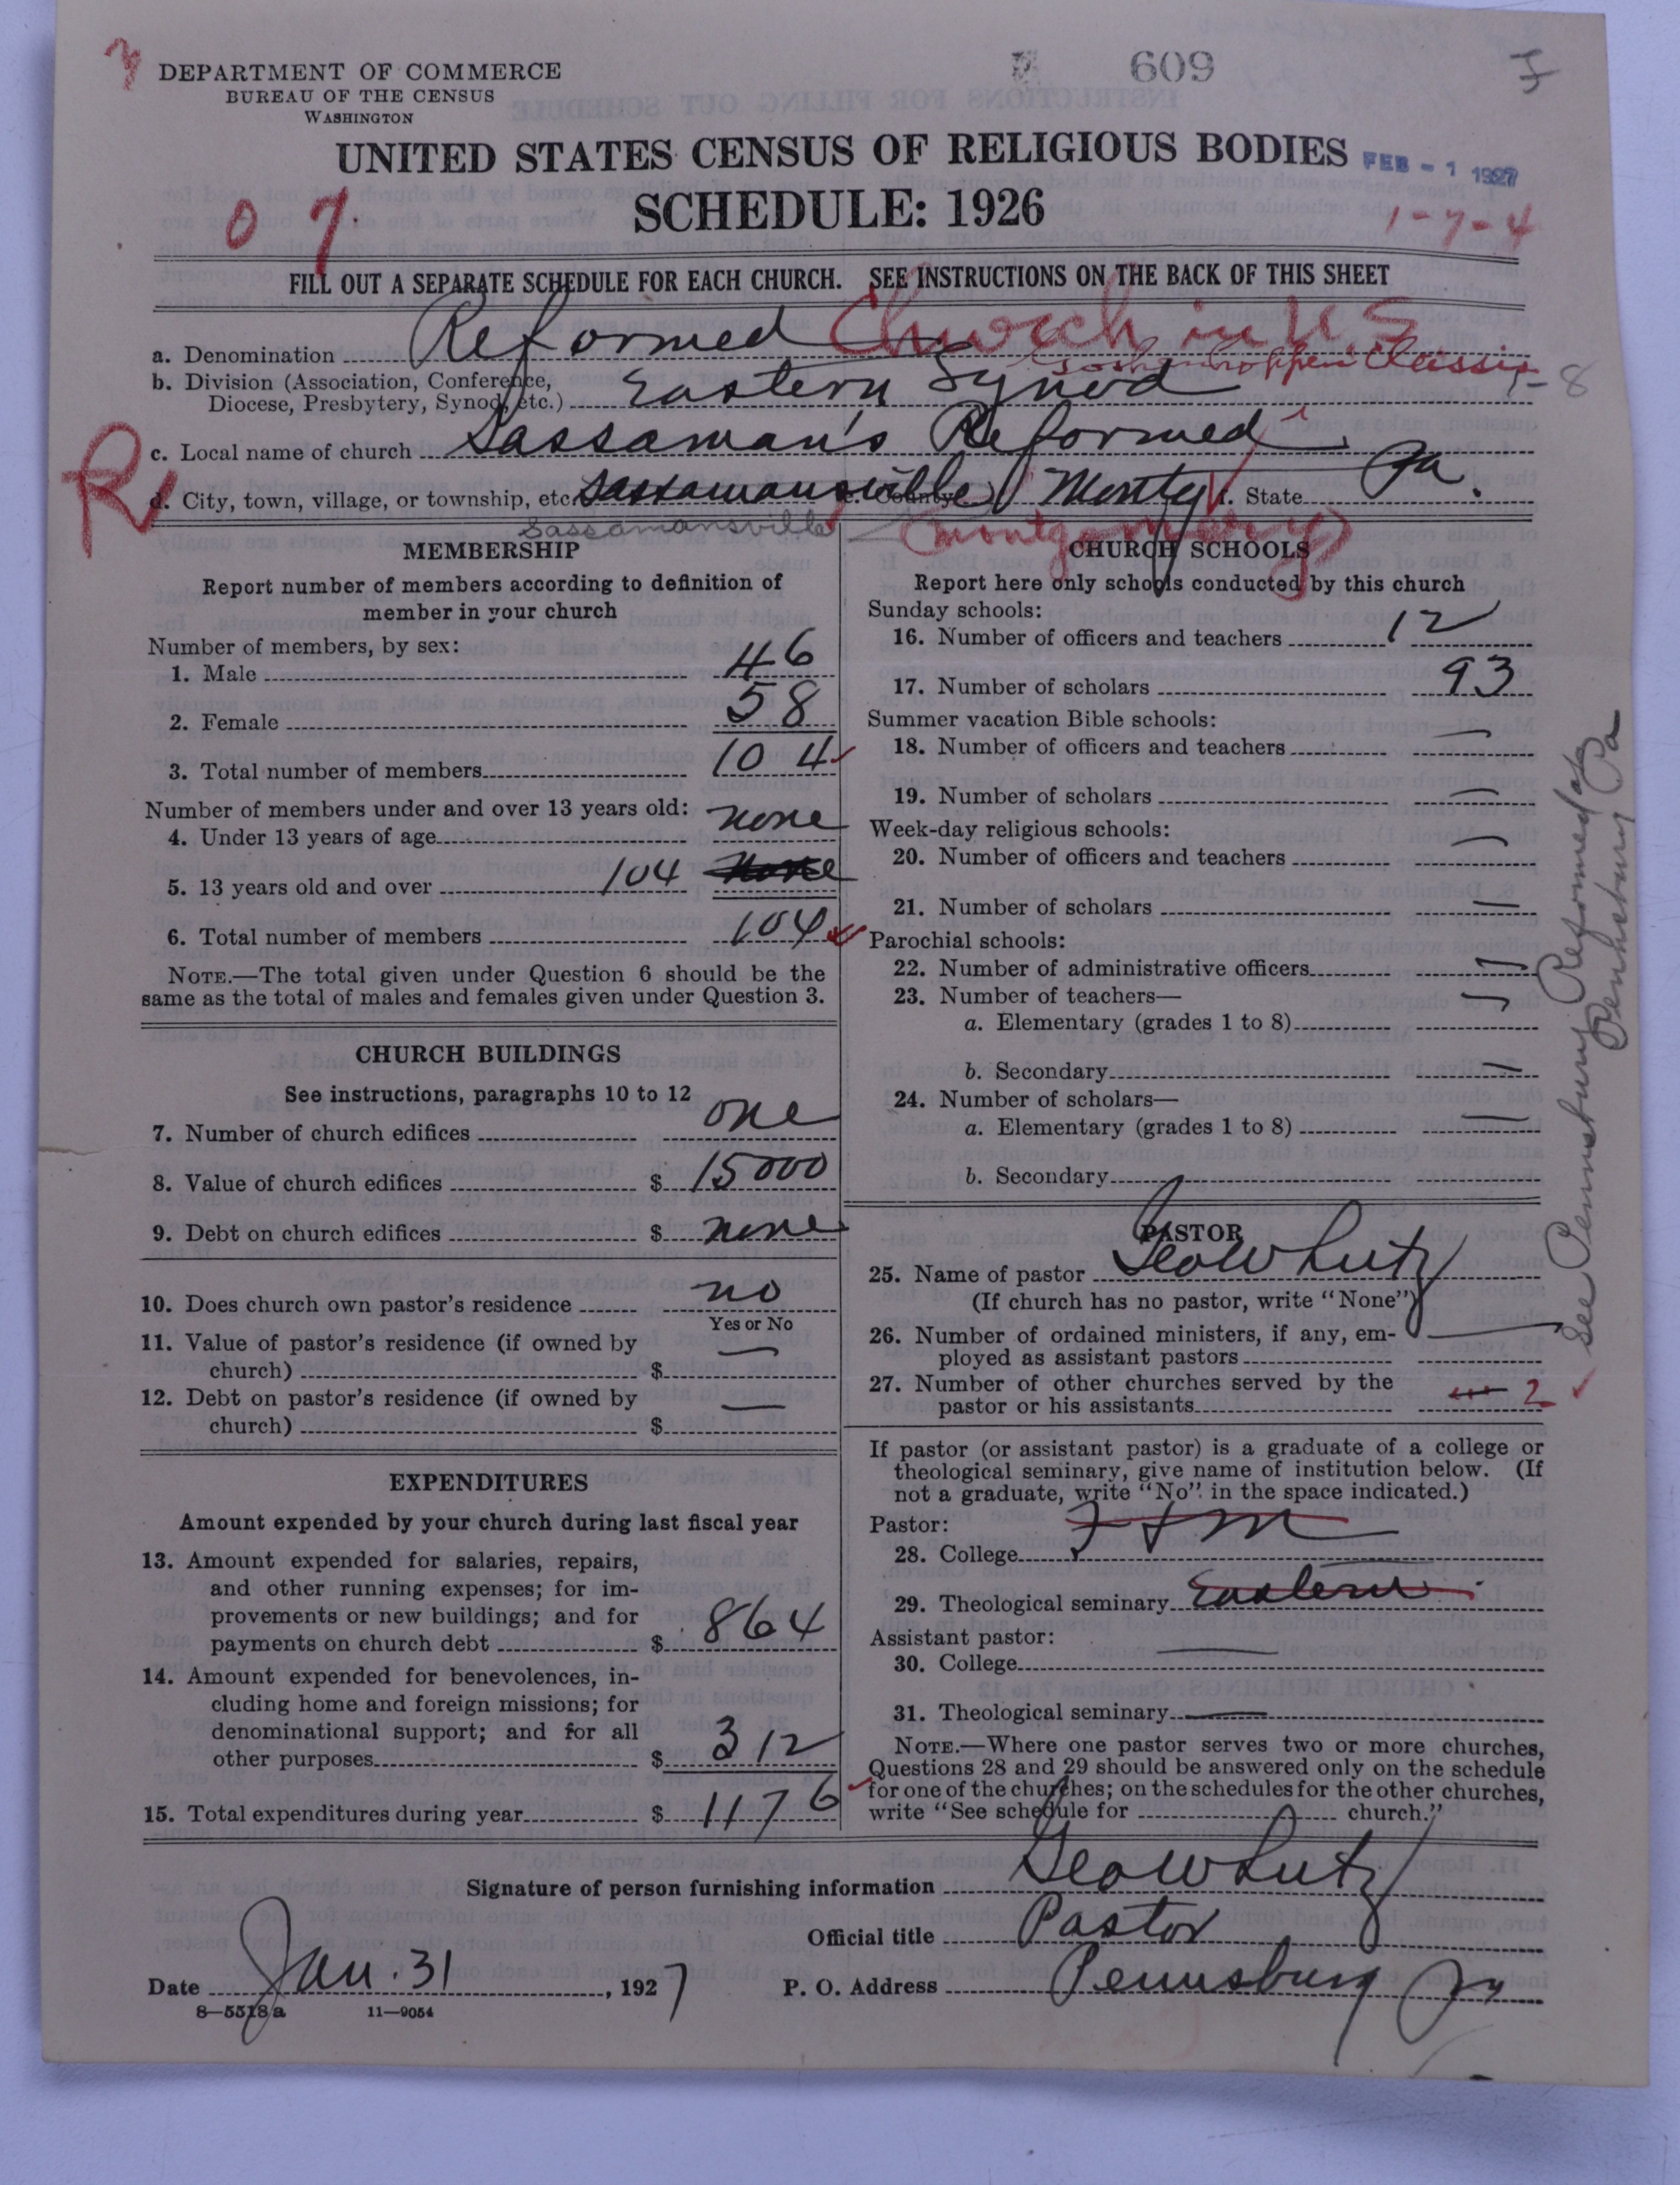 DEPARTMENT OF COMMERCE
BUREAU OF THE CENSUS
WASHINGTON
609
UNITED STATES CENSUS OF RELIGIOUS BODIES
FEB - 1 1927
SCHEDULE: 1926
0 7
1-7-4
FILL OUT A SEPARATE SCHEDULE FOR EACH CHURCH. SEE INSTRUCTIONS ON THE BACK OF THIS SHEET
a. Denomination Reformed Church in U.S.
Goshenhoppen Classis
b. Division (Association, Conference,
Diocese, Presbytery, Synod, etc.) Eastern Synod
c. Local name of church Sassaman's Reformed
R
d. City, town, village, or township, etc. Sassamansville e. County Montg f. State Pa.
Sassamansville
(Montgomery)
MEMBERSHIP
Report number of members according to definition of
member in your church
Number of members, by sex:
1. Male 46
2. Female 58
3. Total number of members 104
Number of members under and over 13 years old:
4. Under 13 years of age none
5. 13 years old and over 104 none
6. Total number of members 104
NOTE.—The total given under Question 6 should be the
same as the total of males and females given under Question 3.
CHURCH BUILDINGS
See instructions, paragraphs 10 to 12
7. Number of church edifices one
8. Value of church edifices $ 15000
9. Debt on church edifices $ none
10. Does church own pastor's residence no
Yes or No
11. Value of pastor's residence (if owned by
church) $ —
12. Debt on pastor's residence (if owned by
church) $ —
EXPENDITURES
Amount expended by your church during last fiscal year
13. Amount expended for salaries, repairs,
and other running expenses; for im-
provements or new buildings; and for
payments on church debt $ 864
14. Amount expended for benevolences, in-
cluding home and foreign missions; for
denominational support; and for all
other purposes $ 312
15. Total expenditures during year $ 1176
CHURCH SCHOOLS
Report here only schools conducted by this church
Sunday schools:
16. Number of officers and teachers 12
17. Number of scholars 93
Summer vacation Bible schools:
18. Number of officers and teachers —
19. Number of scholars —
Week-day religious schools:
20. Number of officers and teachers —
21. Number of scholars —
Parochial schools:
22. Number of administrative officers —
23. Number of teachers—
a. Elementary (grades 1 to 8) —
b. Secondary —
24. Number of scholars—
a. Elementary (grades 1 to 8) —
b. Secondary
PASTOR
25. Name of pastor Geo W Lutz
(If church has no pastor, write "None")
26. Number of ordained ministers, if any, em-
ployed as assistant pastors —
27. Number of other churches served by the
pastor or his assistants 2
If pastor (or assistant pastor) is a graduate of a college or
theological seminary, give name of institution below. (If
not a graduate, write "No" in the space indicated.)
Pastor:
28. College F + M
29. Theological seminary Eastern
Assistant pastor:
30. College —
31. Theological seminary —
NOTE.—Where one pastor serves two or more churches,
Questions 28 and 29 should be answered only on the schedule
for one of the churches; on the schedules for the other churches,
write "See schedule for church."
See Pennsburg Reformed at
Pennsburg Pa
Signature of person furnishing information Geo W Lutz
Official title Pastor
Date Jan. 31, 1927 P. O. Address Pennsburg Pa
8—5518 a 11—9054